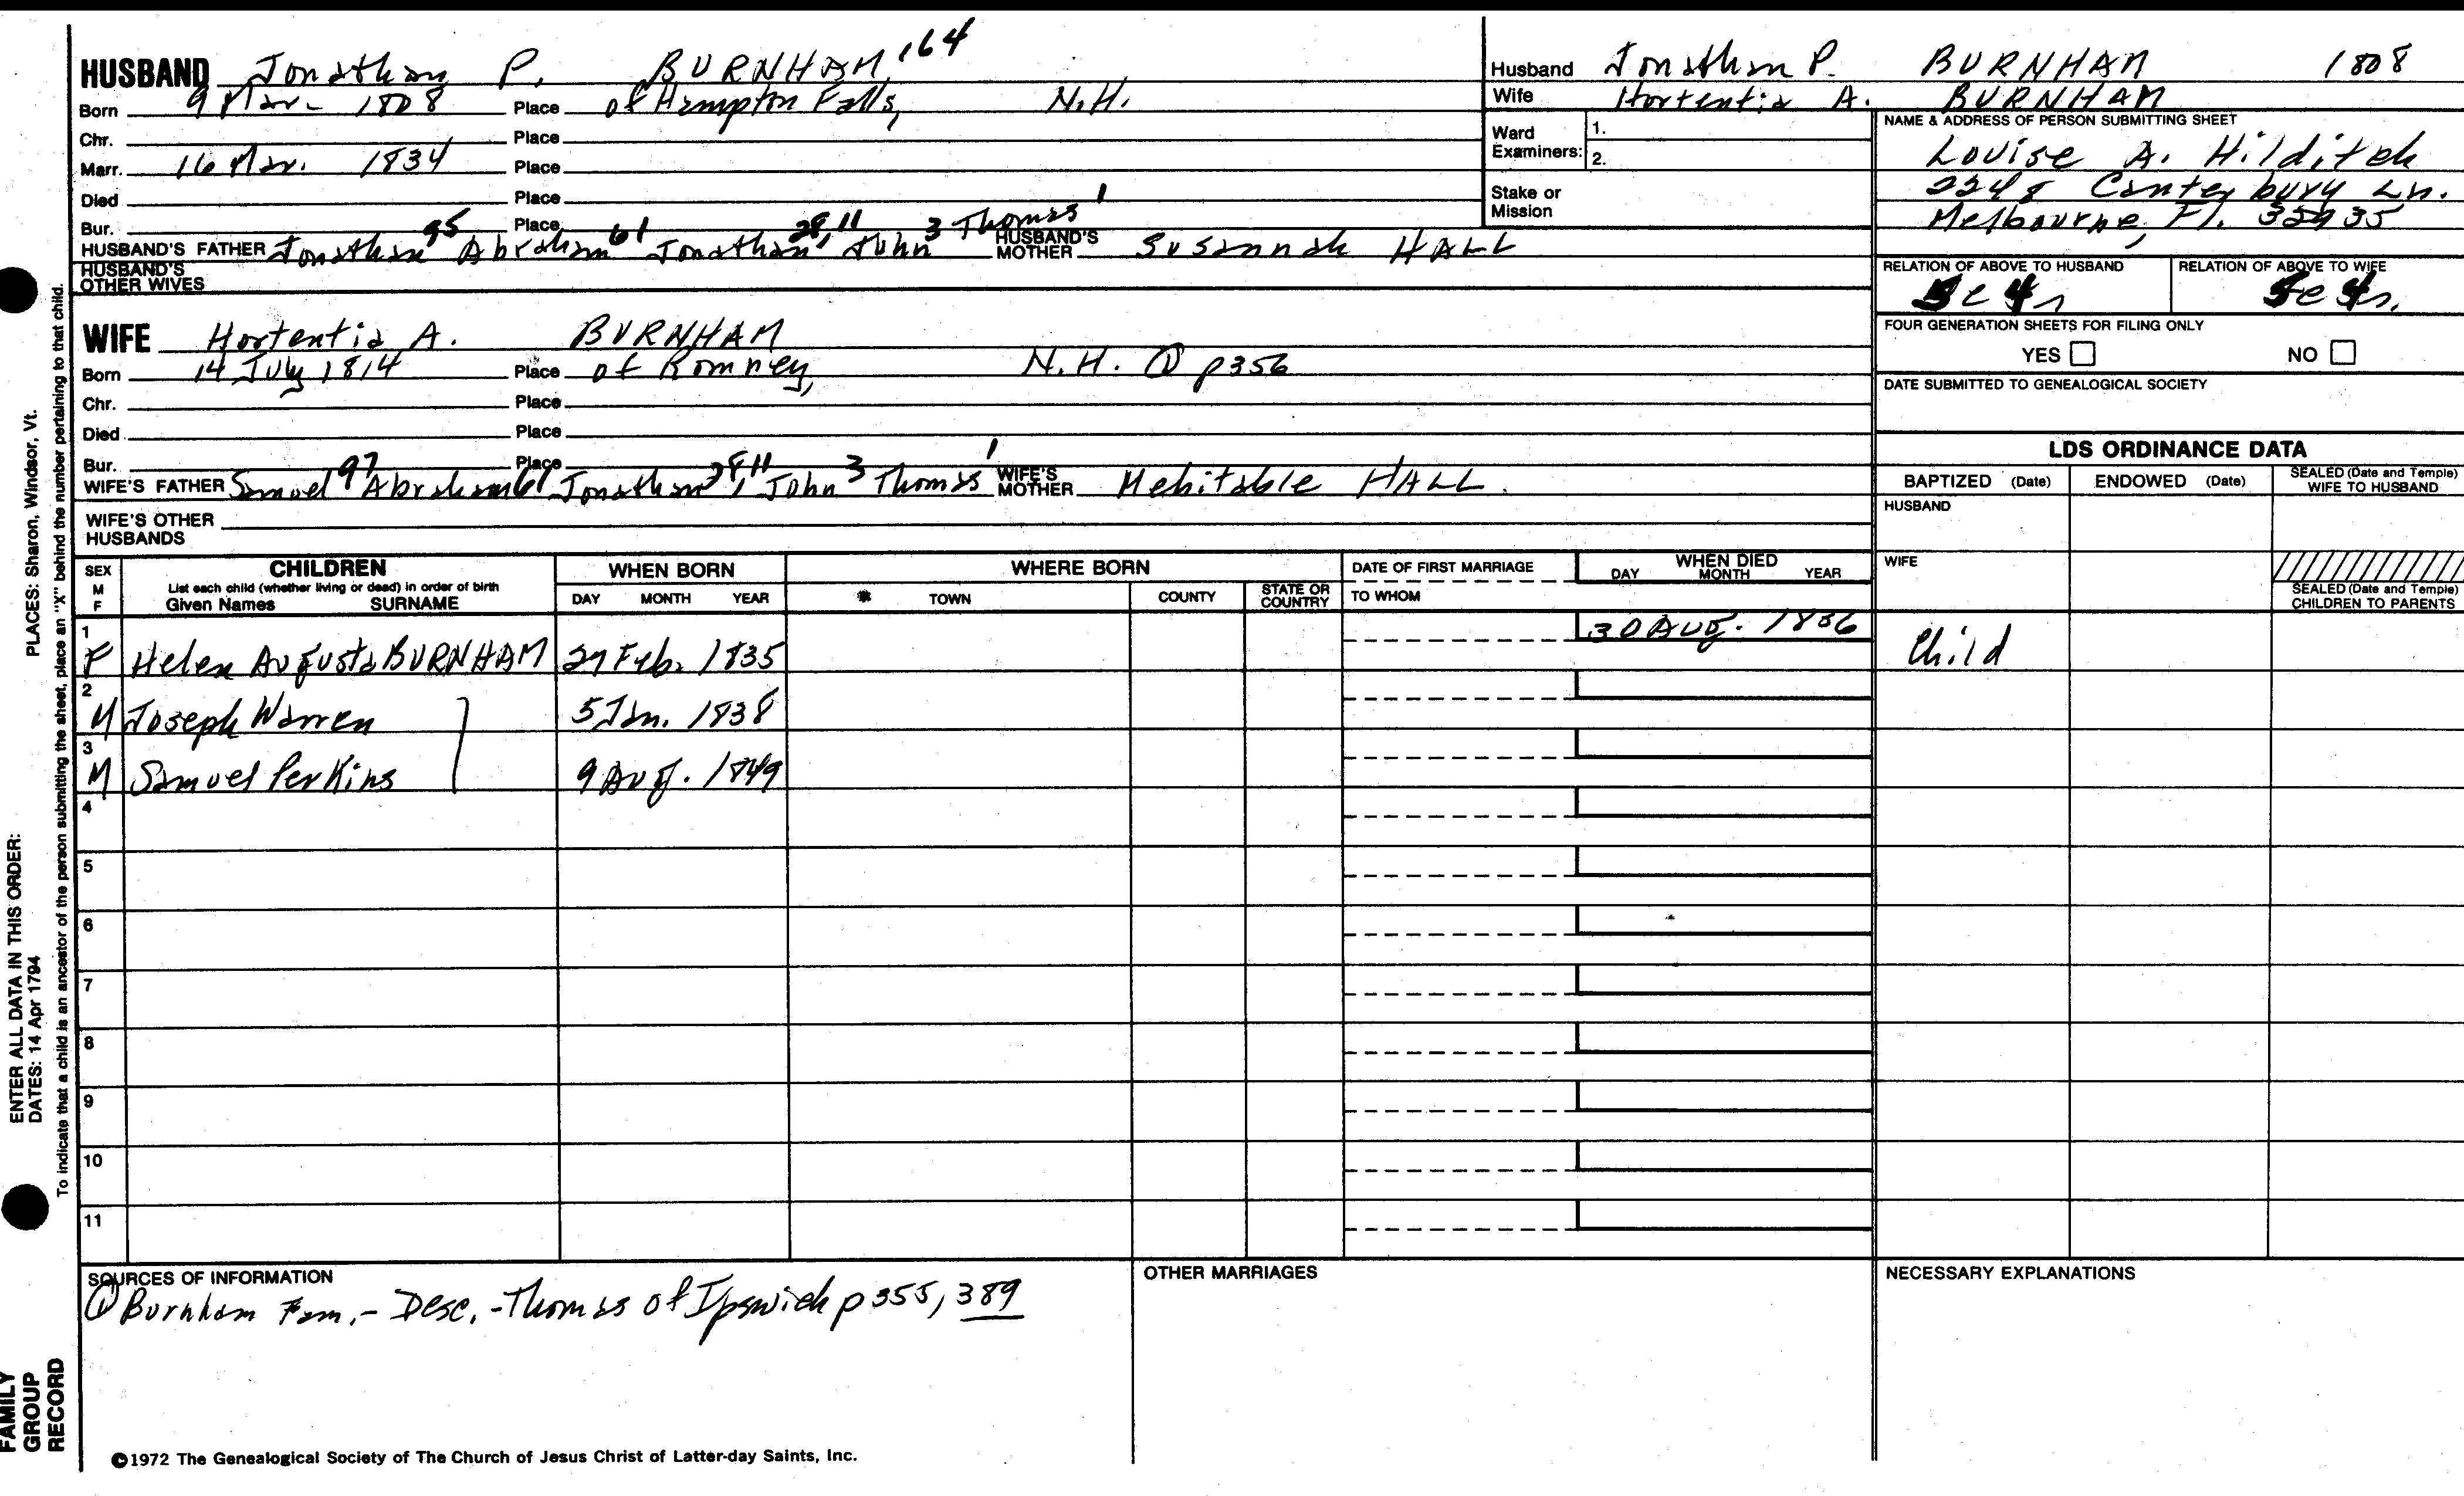 HUSBAND Jonathan P. BURNHAM, 164
Born 9 Mar. 1808 Place of Hampton Falls, N.H.
Chr. Place
Marr. 16 Mar. 1834 Place
Died Place
Bur. Place
HUSBAND'S FATHER Jonathan 95 Abraham 61 Jonathan 28, 11 John 3 Thomas 1 HUSBAND'S MOTHER Susannah HALL
HUSBAND'S OTHER WIVES
WIFE Hortentia A. BURNHAM
Born 14 July 1814 Place of Romney, N.H. ① p356
Chr. Place
Died Place
Bur. Place
WIFE'S FATHER Samuel 97 Abraham 61 Jonathan 28, 11 John 3 Thomas 1 WIFE'S MOTHER Mehitable HALL
WIFE'S OTHER HUSBANDS
Husband Jonathan P. BURNHAM 1808
Wife Hortentia A. BURNHAM
Ward Examiners: 1.
2.
Stake or Mission
NAME & ADDRESS OF PERSON SUBMITTING SHEET
Louise A. Hilditch
2248 Canterbury Ln.
Melbourne, Fl. 32935
RELATION OF ABOVE TO HUSBAND RELATION OF ABOVE TO WIFE
FOUR GENERATION SHEETS FOR FILING ONLY
YES NO
DATE SUBMITTED TO GENEALOGICAL SOCIETY
LDS ORDINANCE DATA
BAPTIZED (Date) ENDOWED (Date) SEALED (Date and Temple) WIFE TO HUSBAND
HUSBAND
WIFE
SEALED (Date and Temple) CHILDREN TO PARENTS
SEX M F
CHILDREN
List each child (whether living or dead) in order of birth
Given Names SURNAME
WHEN BORN
DAY MONTH YEAR
WHERE BORN
TOWN COUNTY STATE OR COUNTRY
DATE OF FIRST MARRIAGE
TO WHOM
WHEN DIED
DAY MONTH YEAR
1 F Helen Augusta BURNHAM 27 Feb. 1835 30 Aug. 1836 Child
2 M Joseph Warren 5 Jan. 1838
3 M Samuel Perkins 9 Aug. 1849
4
5
6
7
8
9
10
11
SOURCES OF INFORMATION
① Burnham Fam. - Desc. - Thomas of Ipswich p 355, 389
OTHER MARRIAGES
NECESSARY EXPLANATIONS
©1972 The Genealogical Society of The Church of Jesus Christ of Latter-day Saints, Inc.
FAMILY GROUP RECORD
ENTER ALL DATA IN THIS ORDER:
DATES: 14 Apr 1794
PLACES: Sharon, Windsor, Vt.
To indicate that a child is an ancestor of the person submitting the sheet, place an "X" behind the number pertaining to that child.